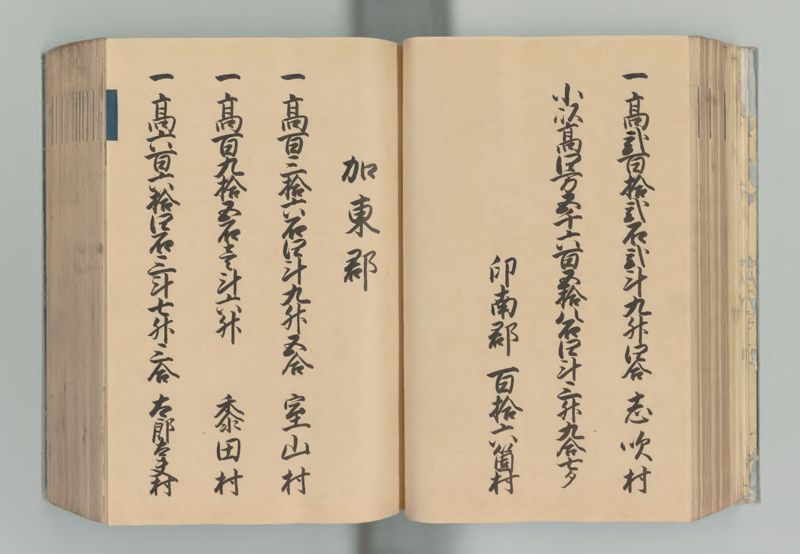 一高弐百拾弐石弐斗九升四合 志吹村
小以高四万五千六百五拾八石四斗三升九合七夕
印南郡 百拾六箇村
加東郡
一高百三拾六石四斗九升五合 室山村
一高百九拾五石壱斗六升 黍田村
一高六百六拾四石三斗七升三合 太郎太夫村